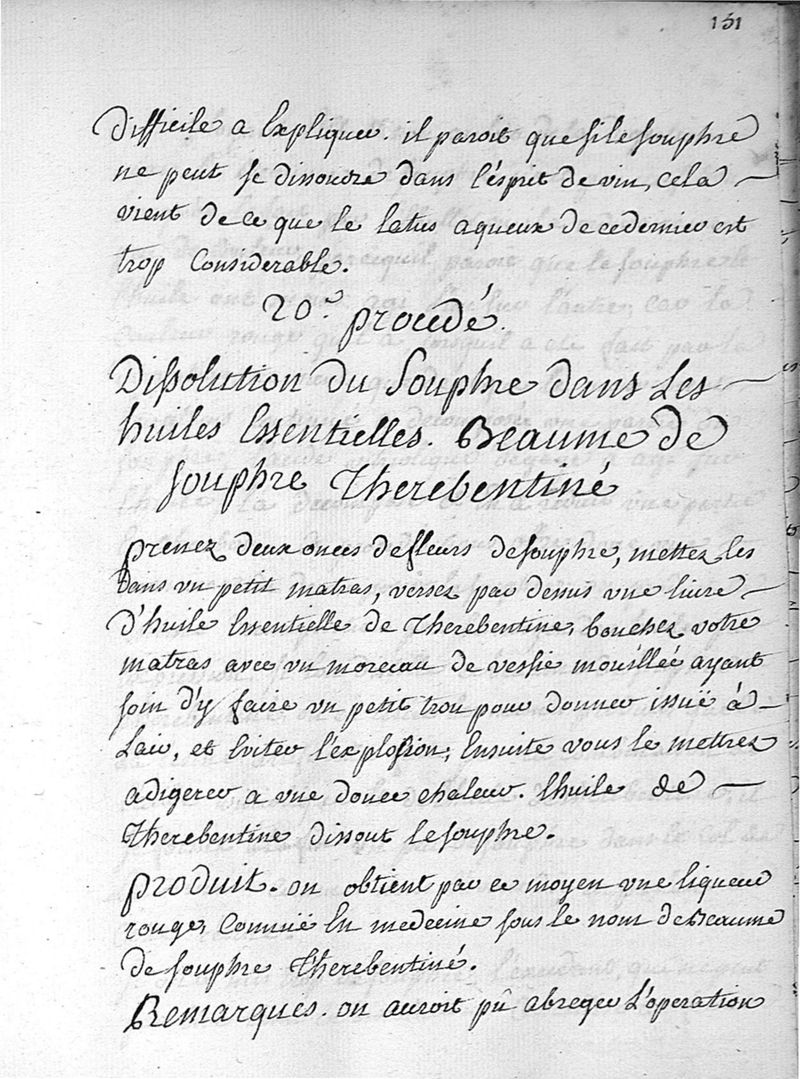 131
difficile a Expliquer. il paroit que si le souphre
ne peut se dissoudre dans l'ésprit de vin, cela
vient de ce que le latus aqueux de ce dernier est
trop Considerable.
20.e procedé.
Dissolution du Souphre dans Les
huiles Essentielles. Beaume de
souphre Therebentiné
prenez deux onces de fleurs de souphre, mettez les
dans un petit matras, versez par dessus une livre
d'huile Essentielle de Therebentine, bouchez votre
matras avec un morceau de vessie mouillée ayant
soin d'y faire un petit trou pour donner issuë à
L'air, et Eviter l'explosion; Ensuite vous le mettrez
a digerer a une douce chaleur. l'huile de
Therebentine dissout le souphre.
produit. on obtient par ce moyen une liqueur
rouge, Connuë En medecine sous le nom de Beaume
de souphre Therebentiné.
Remarques. on auroit pû abreger L'operation